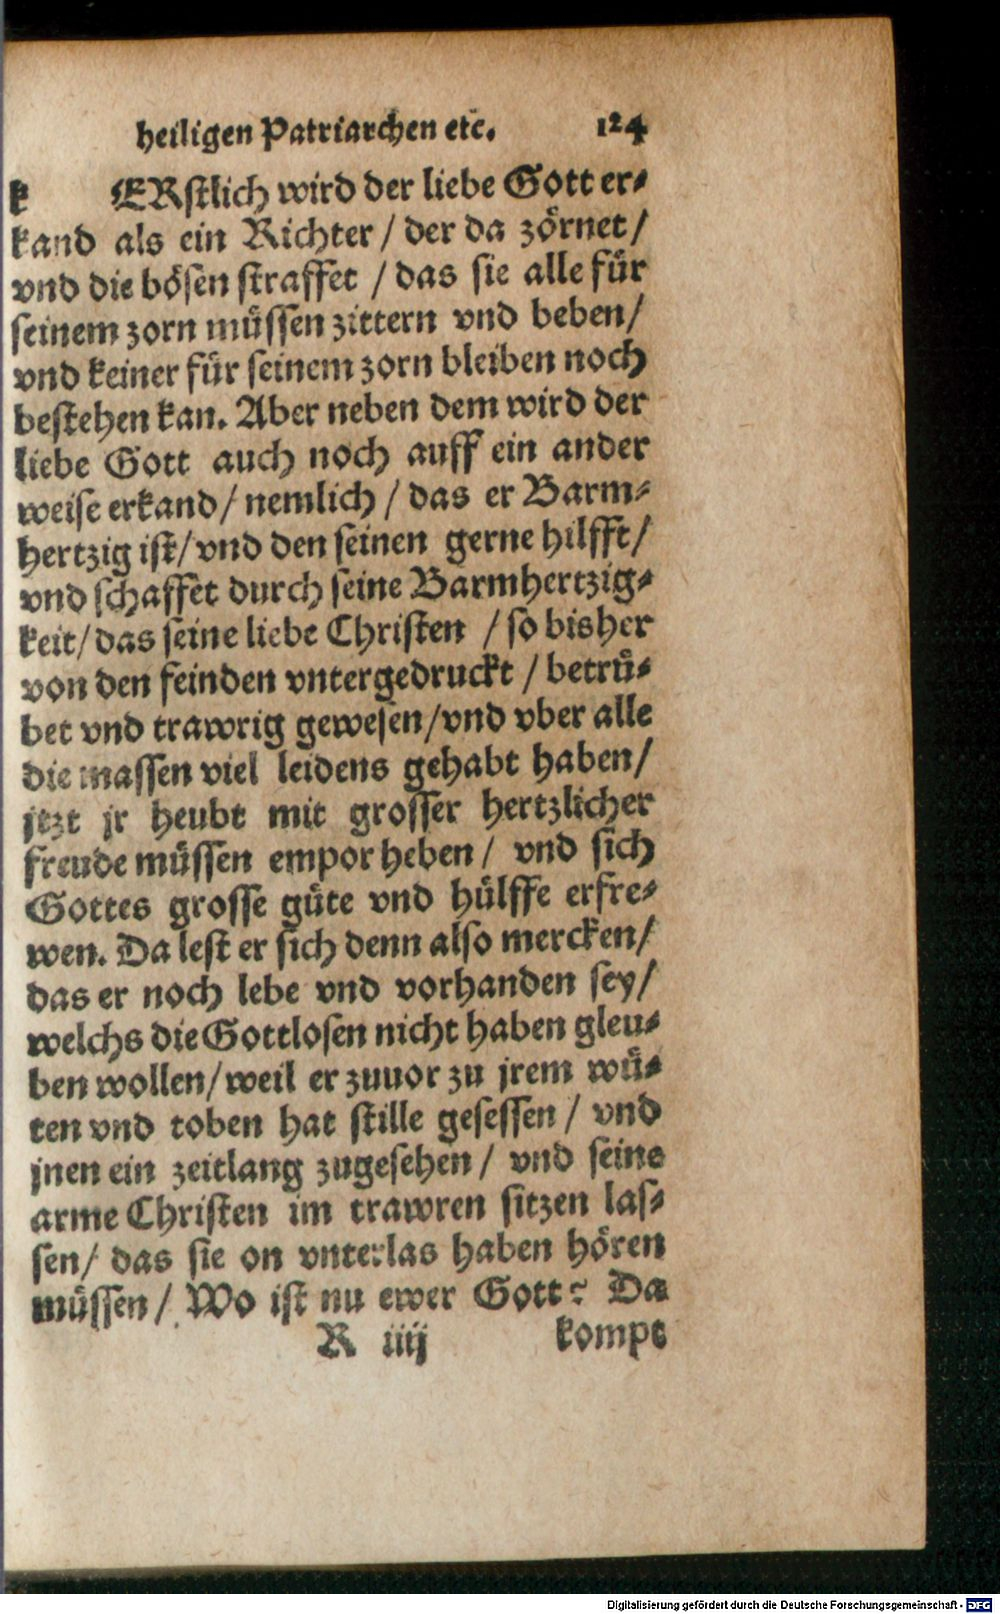 heiligen Patriarchen etc. 124
k ERstlich wird der liebe Gott er-
kand als ein Richter / der da zörnet /
vnd die bösen straffet / das sie alle für
seinem zorn müssen zittern vnd beben /
vnd keiner für seinem zorn bleiben noch
bestehen kan. Aber neben dem wird der
liebe Gott auch noch auff ein ander
weise erkand / nemlich / das er Barm-
hertzig ist / vnd den seinen gerne hilfft /
vnd schaffet durch seine Barmhertzig-
keit / das seine liebe Christen / so bisher
von den feinden vntergedruckt / betrü-
bet vnd trawrig gewesen / vnd vber alle
die massen viel leidens gehabt haben /
jtzt jr heubt mit grosser hertzlicher
freude müssen empor heben / vnd sich
Gottes grosse güte vnd hülffe erfre-
wen. Da lest er sich denn also mercken /
das er noch lebe vnd vorhanden sey /
welchs die Gottlosen nicht haben gleu-
ben wollen / weil er zuuor zu jrem wü-
ten vnd toben hat stille gesessen / vnd
jnen ein zeitlang zugesehen / vnd seine
arme Christen im trawren sitzen las-
sen / das sie on vnterlas haben hören
müssen / Wo ist nu ewer Gott? Da
R iiij kompt
Digitalisierung gefördert durch die Deutsche Forschungsgemeinschaft - DFG